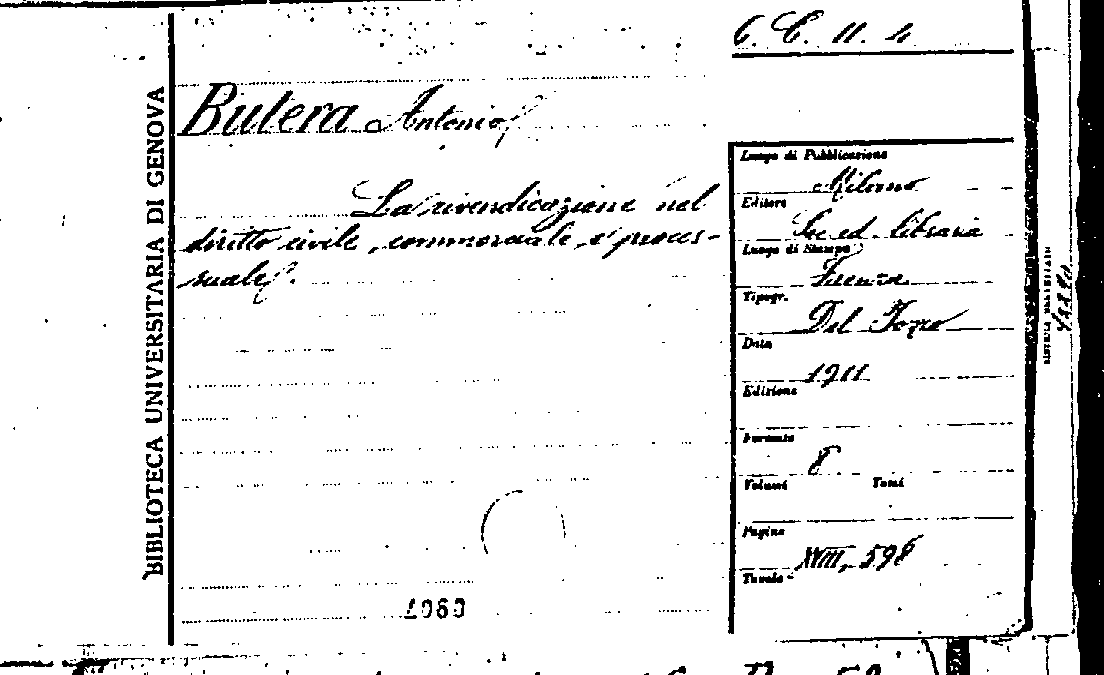 6. C. 11. 4
BIBLIOTECA UNIVERSITARIA DI GENOVA
Butera Antonio
La rivendicazione nel
diritto civile, commerciale, e proces-
suale.
1960
Luogo di Pubblicazione
Milano
Editore
Soc. ed. libraria
Luogo di Stampa
Firenze
Tipogr.
Del Topo
Data
1911
Edizione
Formato
8
Volumi Tomi
Pagine
XVIII, 598
Tavole